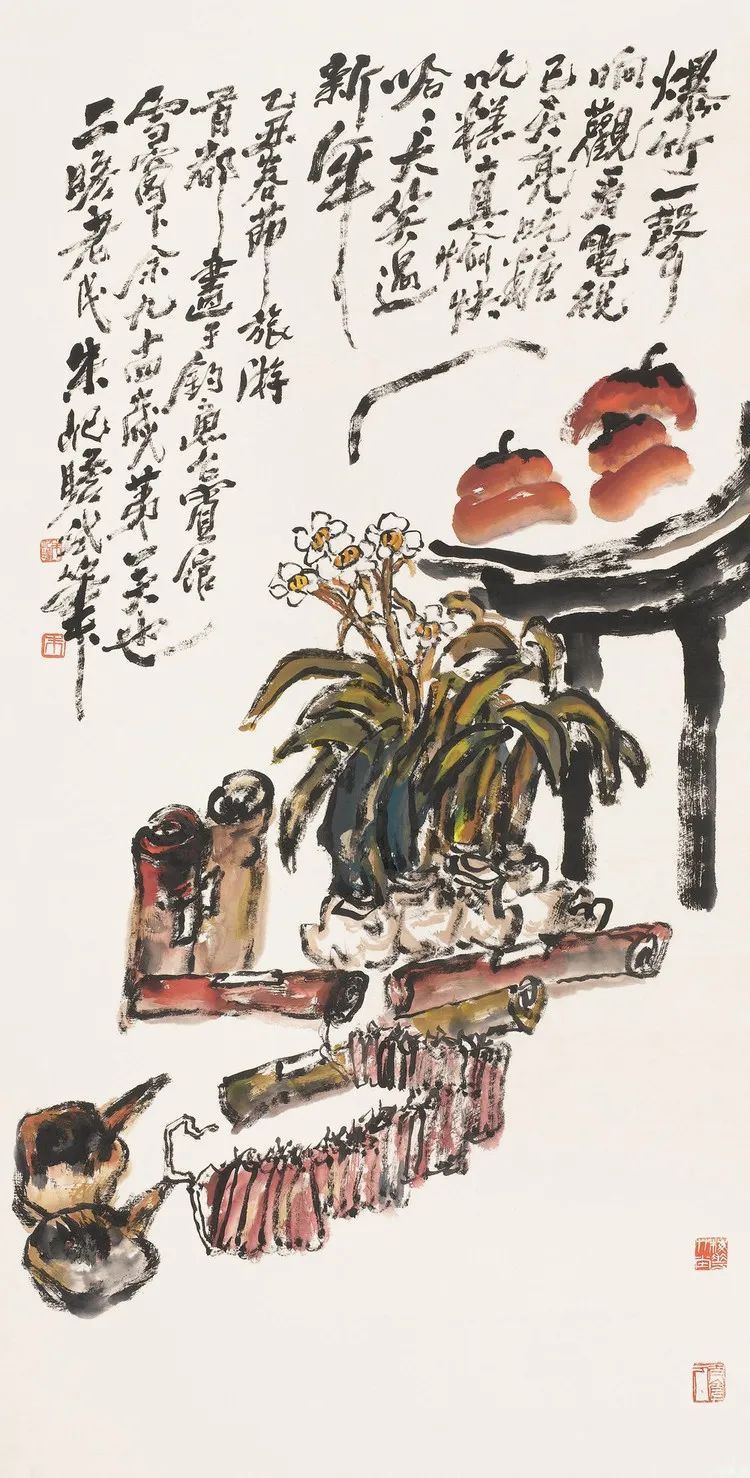 爆竹一声
响觀看電視
已天亮吃糖
吃糕真愉快
哈哈大笑過
新年
乙丑春節旅游
首都畫于釣魚台賓館
雪窗下余九十四歲第一筆也
二瞻老民朱屺瞻試筆